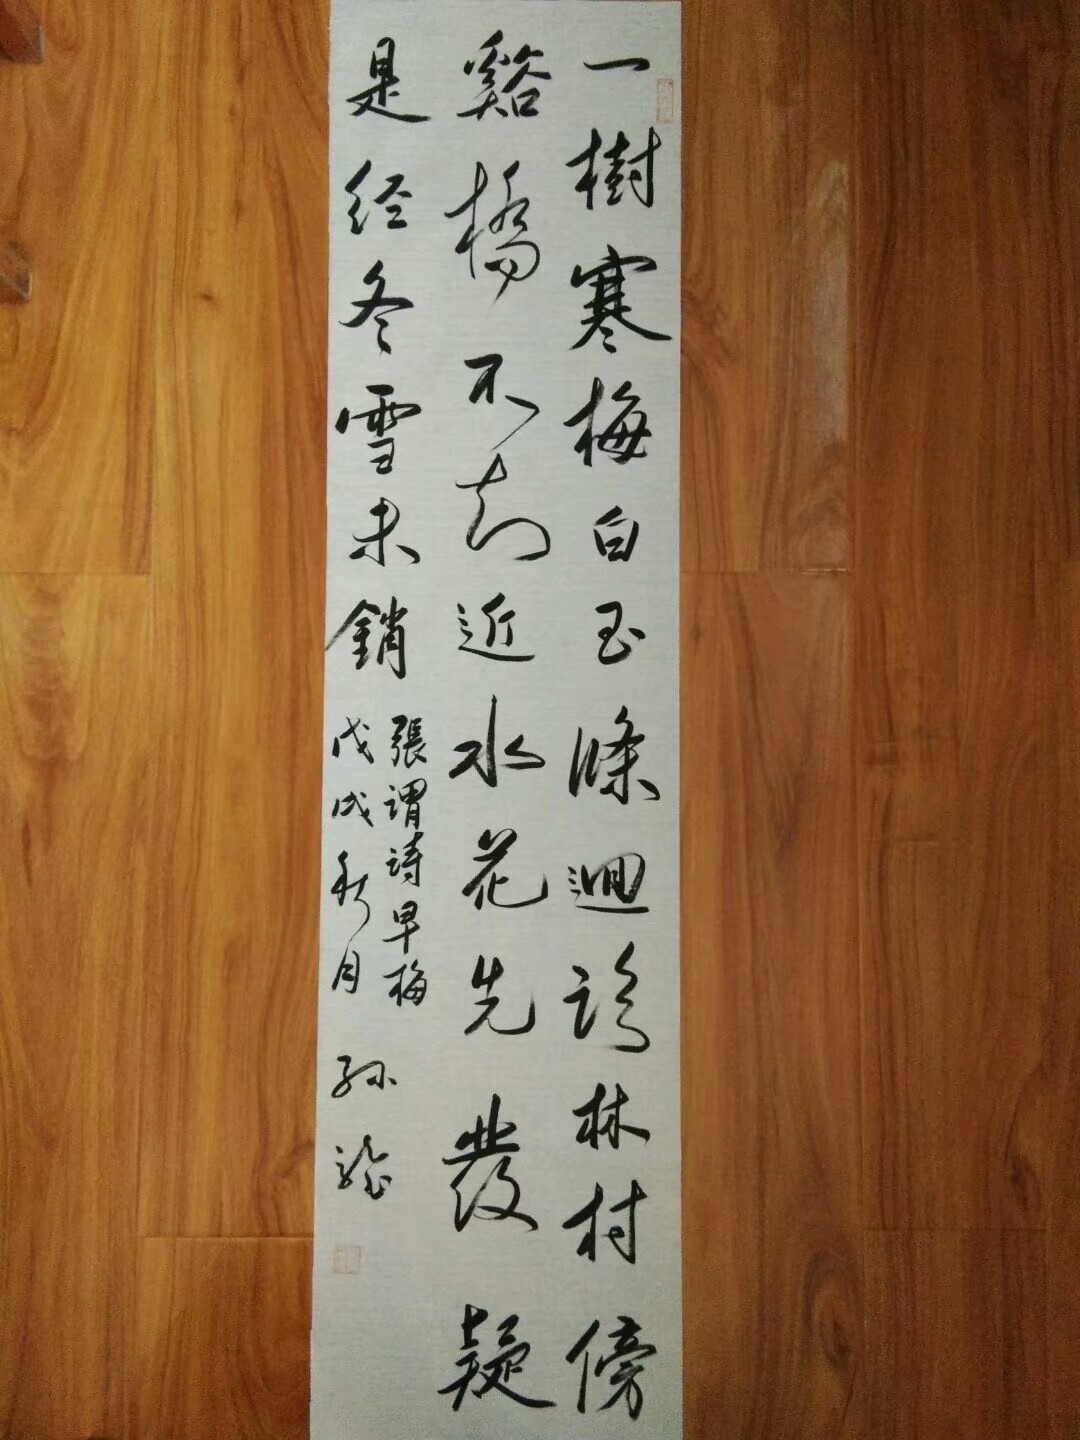 一樹寒梅白玉條迴林村傍
谿橋不知近水花先發疑
是经冬雪未銷
張謂詩早梅
戊戌秋月 孙